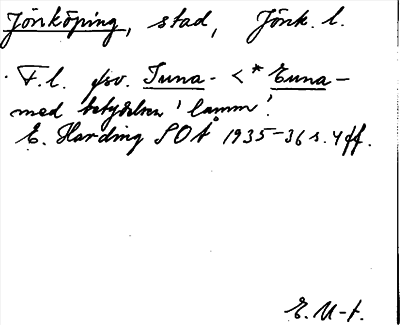 Jönköping, stad, Jönk. l.
F.l. fsv. Iuna- < * Euna-
med betydelsen 'lamm'.
E. Harding SOÅ 1935-36 s. 4 ff.
E. M-t.